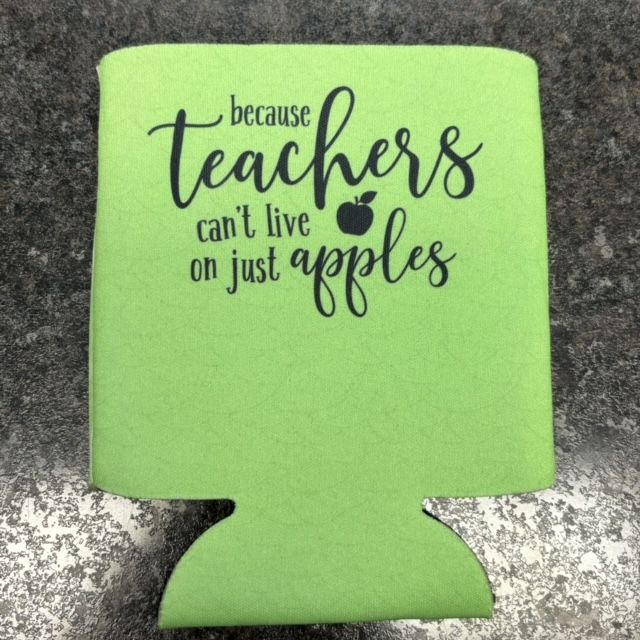 because
teachers
can't live
on just apples